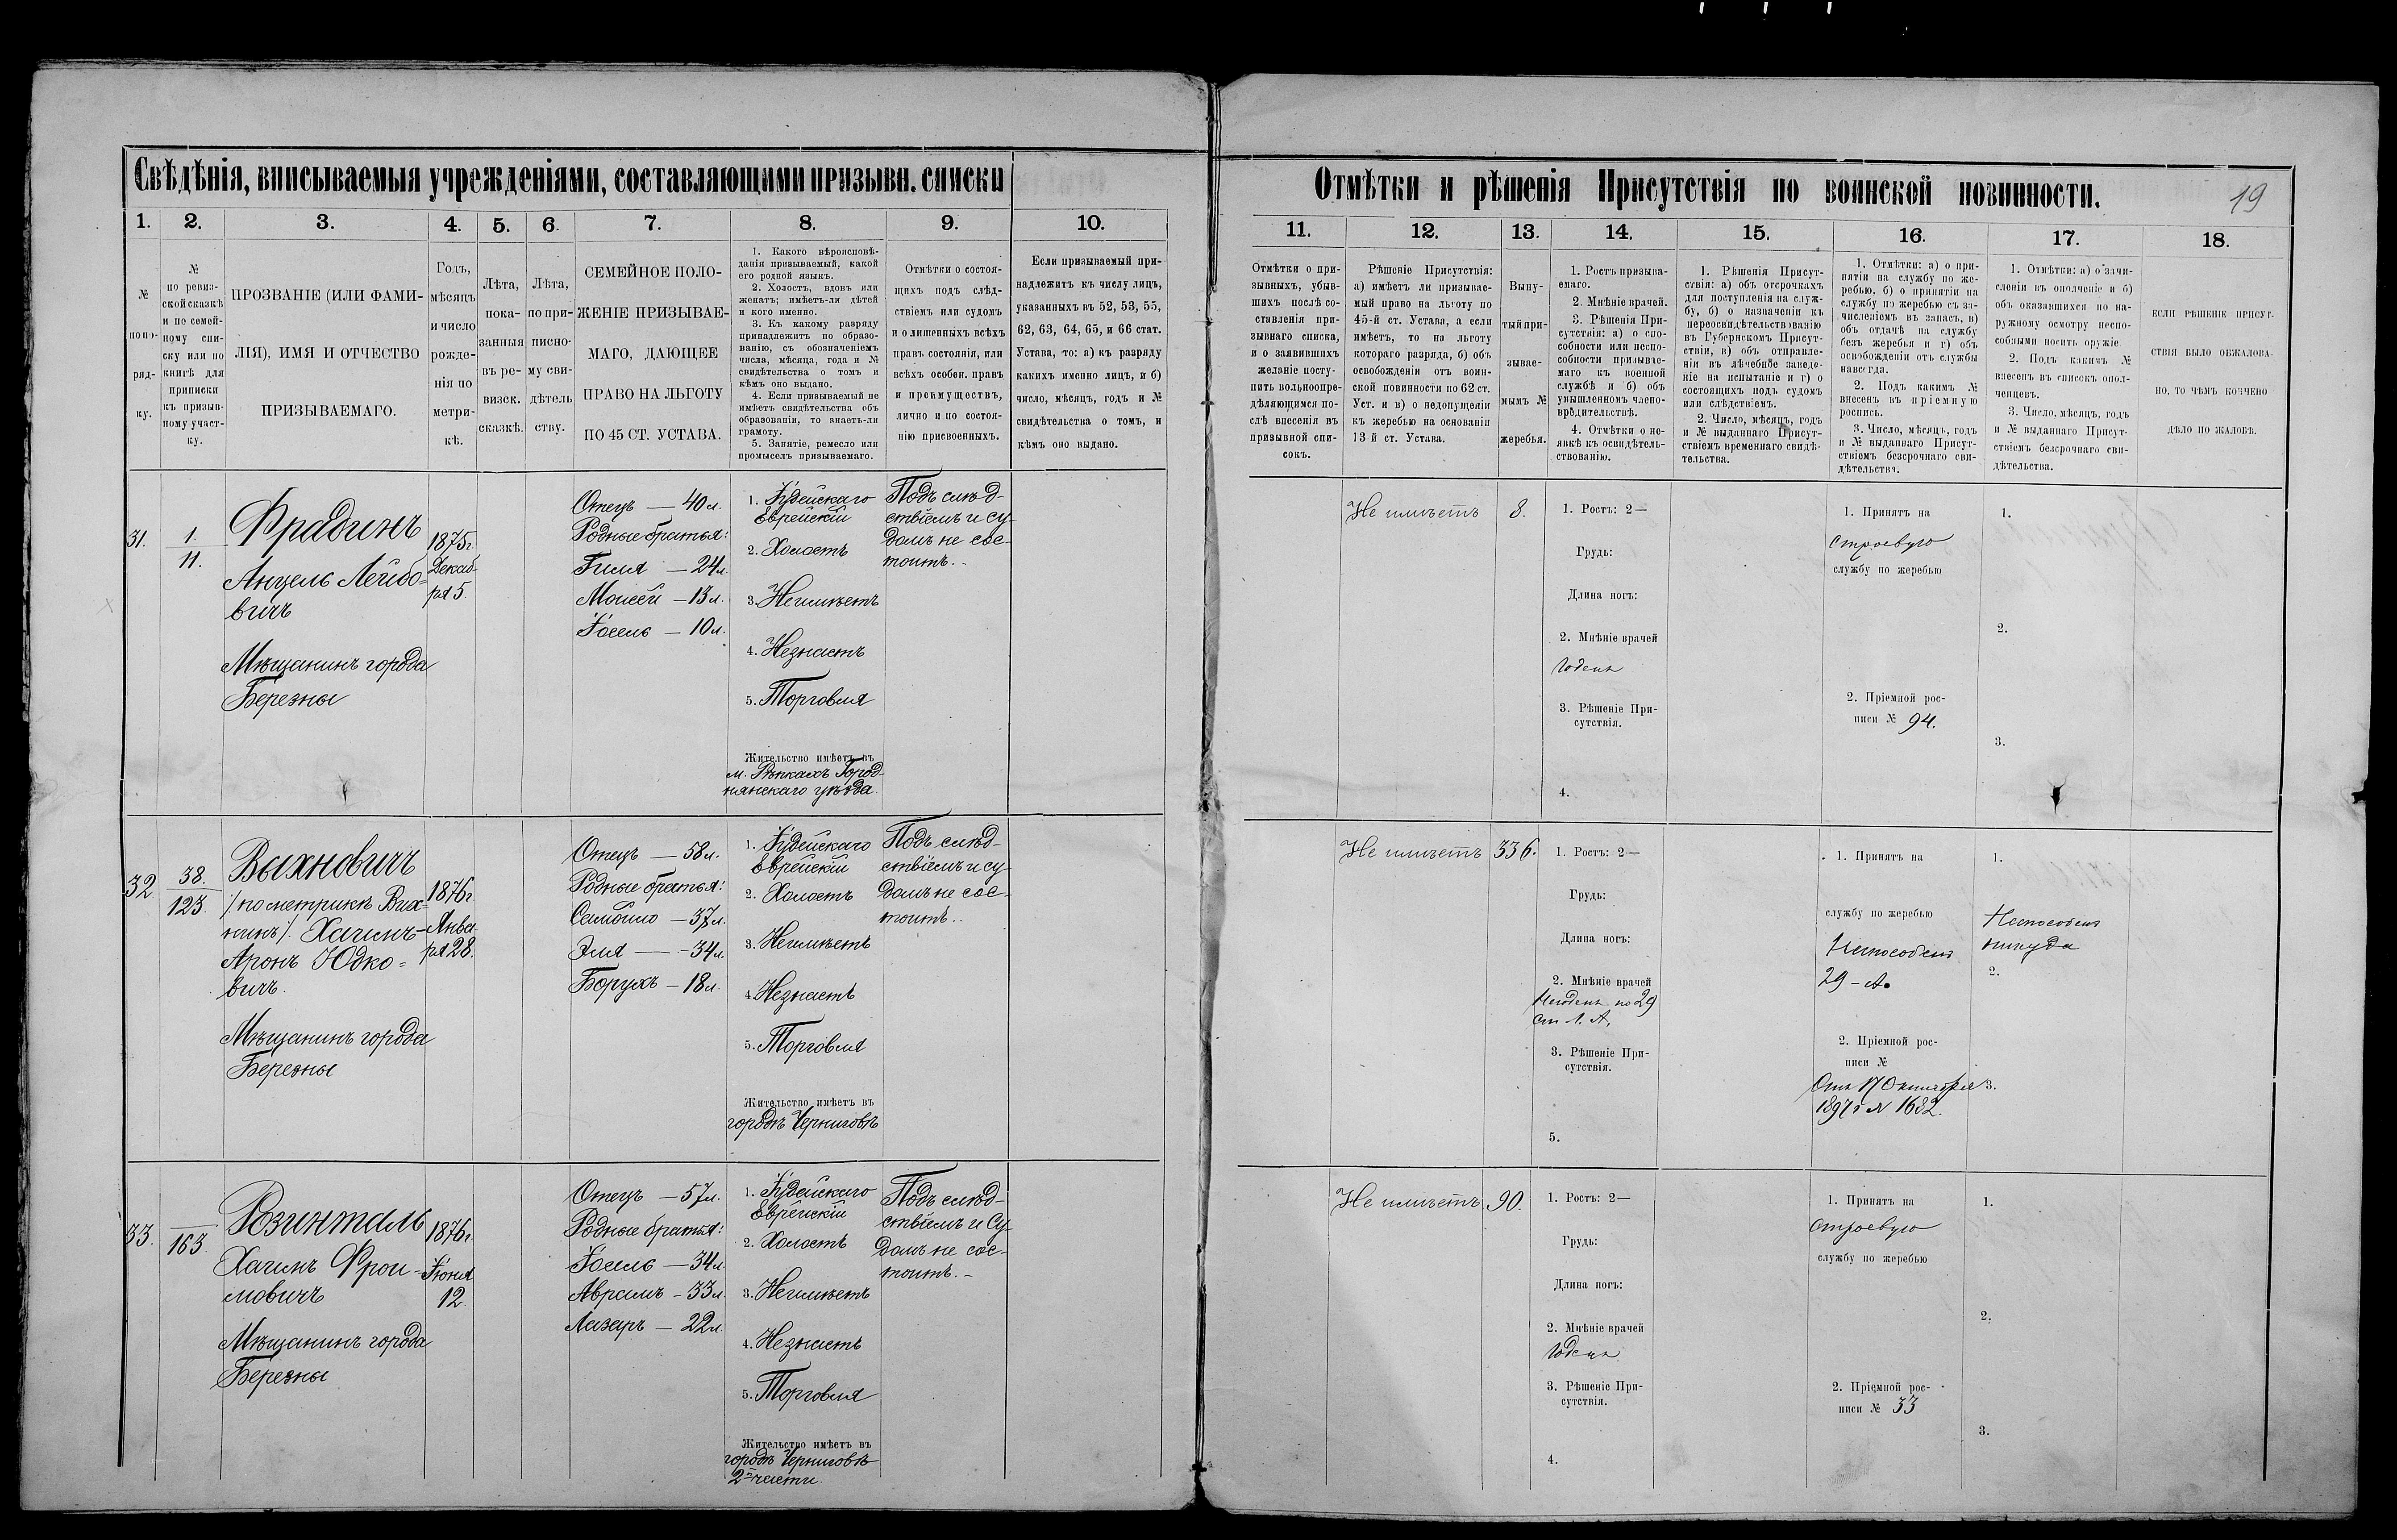 Свѣдѣнія, вписываемыя учрежденіями, составляющими призывн. списки
1.
2.
3.
4.
5.
6.
7.
8.
9.
10.
№
по по-
ряд-
ку.
№
по ревиз-
ской сказкѣ
и по семей-
ному спи-
ску или по
книгѣ для
приписки
къ призыв-
ному участ-
ку.
ПРОЗВАНІЕ (ИЛИ ФАМИ-
ЛІЯ), ИМЯ И ОТЧЕСТВО
ПРИЗЫВАЕМАГО.
Годъ,
мѣсяцъ
и число
рожде-
нія по
метри-
кѣ.
Лѣта,
пока-
занныя
въ ре-
визск.
сказкѣ.
Лѣта,
по при-
писно-
му сви-
дѣтель
ству.
СЕМЕЙНОЕ ПОЛО-
ЖЕНІЕ ПРИЗЫВАЕ-
МАГО, ДАЮЩЕЕ
ПРАВО НА ЛЬГОТУ
ПО 45 СТ. УСТАВА.
1. Какого вѣроисповѣ-
данія призываемый, какой
его родной языкъ.
2. Холостъ, вдовъ или
женатъ; имѣетъ-ли дѣтей
и кого именно.
3. Къ какому разряду
принадлежитъ по образо-
ванію, съ обозначеніемъ
числа, мѣсяца, года и №
свидѣтельства о томъ и
кѣмъ оно выдано.
4. Если призываемый не
имѣетъ свидѣтельства объ
образованіи, то знаетъ-ли
грамоту.
5. Занятіе, ремесло или
промыселъ призываемаго.
Отмѣтки о состоя-
щихъ подъ слѣд-
ствіемъ или судомъ
и о лишенныхъ всѣхъ
правъ состоянія, или
всѣхъ особен. правъ
и преимуществъ,
лично и по состоя-
нію присвоенныхъ.
Если призываемый при-
надлежитъ къ числу лицъ,
указанныхъ въ 52, 53, 55,
62, 63, 64, 65, и 66 стат.
Устава, то: а) къ разряду
какихъ именно лицъ, и б)
число, мѣсяцъ, годъ и №
свидѣтельства о томъ, и
кѣмъ оно выдано.
31.
1.
11.
Фрадинъ
Анцель Лейбо-
вичъ
Мѣщанинъ города
Березны
1875г.
Декаб-
ря 5.
Отецъ — 40 л.
Родные братья:
Гиля — 24 л.
Моисей — 13 л.
Іосель — 10 л.
1. Іудейскаго
Еврейскій
2. Холостъ
3. Неимѣетъ
4. Незнаетъ
5. Торговля
Жительство имѣетъ въ
м. Рѣпкахъ Город-
нянскаго уѣзда
Подъ слѣд-
ствіемъ и су-
домъ не сос-
тоитъ. -
32
38.
123.
Выхновичъ
/: по метрикѣ Вих-
нинъ :/. Хаимъ-
Аронъ Юдко-
вичъ.
Мѣщанинъ города
Березны
1876г.
Янва-
ря 28.
Отецъ — 58 л.
Родные братья:
Самойло — 37 л.
Эля — 34 л.
Борухъ — 18 л.
1. Іудейскаго
Еврейскій
2. Холостъ
3. Неимѣетъ
4. Незнаетъ
5. Торговля
Жительство имѣетъ въ
городѣ Черниговѣ
Подъ слѣд-
ствіемъ и су-
домъ не сос-
тоитъ. .
33.
163.
Розинталь
Хаимъ Фрои-
мовичъ
Мѣщанинъ города
Березны
1876г.
Іюня
12.
Отецъ — 57 л.
Родные братья:
Іосель — 34 л.
Аврамъ — 33 л.
Лазарь — 22 л.
1. Іудейскаго
Еврейскій
2. Холостъ
3. Неимѣетъ
4. Незнаетъ
5. Торговля
Жительство имѣетъ въ
городѣ Черниговѣ
2й части.
Подъ слѣд-
ствіемъ и су-
домъ не сос-
тоитъ. -
Отмѣтки и рѣшенія Присутствія по воинской повинности.
19
11.
12.
13.
14.
15.
16.
17.
18.
Отмѣтки о при-
зывныхъ, убыв-
шихъ послѣ со-
ставленія при-
зывнаго списка,
и о заявившихъ
желаніе посту-
пить вольноопре-
дѣляющимся по-
слѣ внесенія въ
призывной спи-
сокъ.
Рѣшеніе Присутствія:
а) имѣетъ ли призывае-
мый право на льготу по
45-й ст. Устава, а если
имѣетъ, то на льготу
котораго разряда, б) объ
освобожденіи отъ воин-
ской повинности по 62 ст.
Уст. и в) о недопущеніи
къ жеребью на основаніи
13 й ст. Устава.
Выну-
тый при-
зывае-
мымъ №
жеребья.
1. Ростъ призыва-
емаго.
2. Мнѣніе врачей.
3. Рѣшенія При-
сутствія: а) о спо-
собности или неспо-
собности призывае-
маго къ военной
службѣ и б) объ
умышленномъ члено-
вредительствѣ.
4. Отмѣтки о не-
явкѣ къ освидѣтель-
ствованію.
1. Рѣшенія Присут-
ствія: а) объ отсрочкахъ
для поступленія на служ-
бу, б) о назначеніи къ
переосвидѣтельствованію
въ Губернскомъ Присут-
ствіи, в) объ отправле-
ніи въ лѣчебное заведе-
ніе на испытаніе и г) о
состоящихъ подъ судомъ
или слѣдствіемъ.
2. Число, мѣсяцъ, годъ
и № выданнаго Присут-
ствіемъ временнаго свидѣ-
тельства.
1. Отмѣтки: а) о при-
нятіи на службу по же-
ребью, б) о принятіи на
службу по жеребью съ за-
численіемъ въ запасъ, в)
объ отдачѣ на службу
безъ жеребья и г) объ
освобожденіи отъ службы
навсегда.
2. Подъ какимъ №
внесенъ въ пріемную
роспись.
3. Число, мѣсяцъ, годъ
и № выданнаго Присут-
ствіемъ безсрочнаго сви-
дѣтельства.
1. Отмѣтки: а) о зачи-
сленіи въ ополченіе и б)
объ оказавшихся по на-
ружному осмотру неспо-
собными носить оружіе.
2. Подъ какимъ №
внесенъ въ списокъ опол-
ченцевъ.
3. Число, мѣсяцъ, годъ
и № выданнаго Присут-
ствіемъ безсрочнаго сви-
дѣтельства.
ЕСЛИ РѢШЕНІЕ ПРИСУТ-
СТВІЯ БЫЛО ОБЖАЛОВА-
НО, ТО ЧѢМЪ КОНЧЕНО
ДѢЛО ПО ЖАЛОБѢ.
Не имѣетъ
8.
1. Ростъ: 2—
Грудь:
Длина ногъ:
2. Мнѣніе врачей
Годенъ
3. Рѣшеніе При-
сутствія.
4.
1. Принятъ на
строевую
службу по жеребью
2. Пріемной рос-
писи № 94.
1.
2.
3.
Не имѣетъ
336.
1. Ростъ: 2—
Грудь:
Длина ногъ:
2. Мнѣніе врачей
Негоденъ по 29
ст л. А,
3. Рѣшеніе При-
сутствія.
5.
1. Принятъ на
службу по жеребью
Неспособенъ
29 - А.
2. Пріемной рос-
писи №
Отъ 17 Октября
1897 г № 1682.
1.
Неспособенъ
никуда
2.
3.
Не имѣетъ
90.
1. Ростъ: 2—
Грудь:
Длина ногъ:
2. Мнѣніе врачей
Годенъ
3. Рѣшеніе При-
сутствія.
4.
1. Принятъ на
строевую
службу по жеребью
2. Пріемной рос-
писи № 33
1.
2.
3.